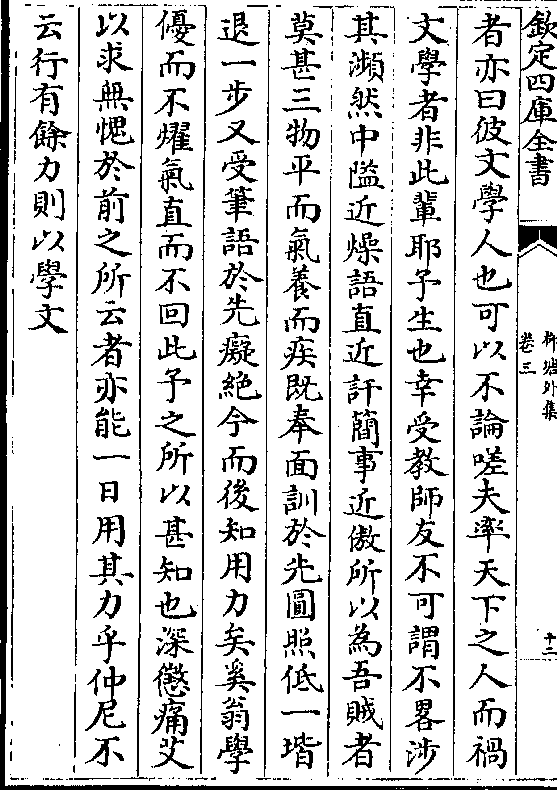 欽定四庫全書
柳塘外集
卷三
十二
者亦曰彼文學人也可以不論嗟夫率天下之人而禍
文學者非此輩耶予生也幸受教師友不可謂不畧涉
其瀕然中隘近燥語直近訐簡事近傲所以為吾賊者
莫甚三物平而氣養而疾既奉面訓於先圓照低一堦
退一步又受筆語於先癡絶今而後知用力矣奚翁學
優而不燿氣直而不回此予之所以甚知也深懲痛艾
以求無愧於前之所云者亦能一日用其力乎仲尼不
云行有餘力則以學文